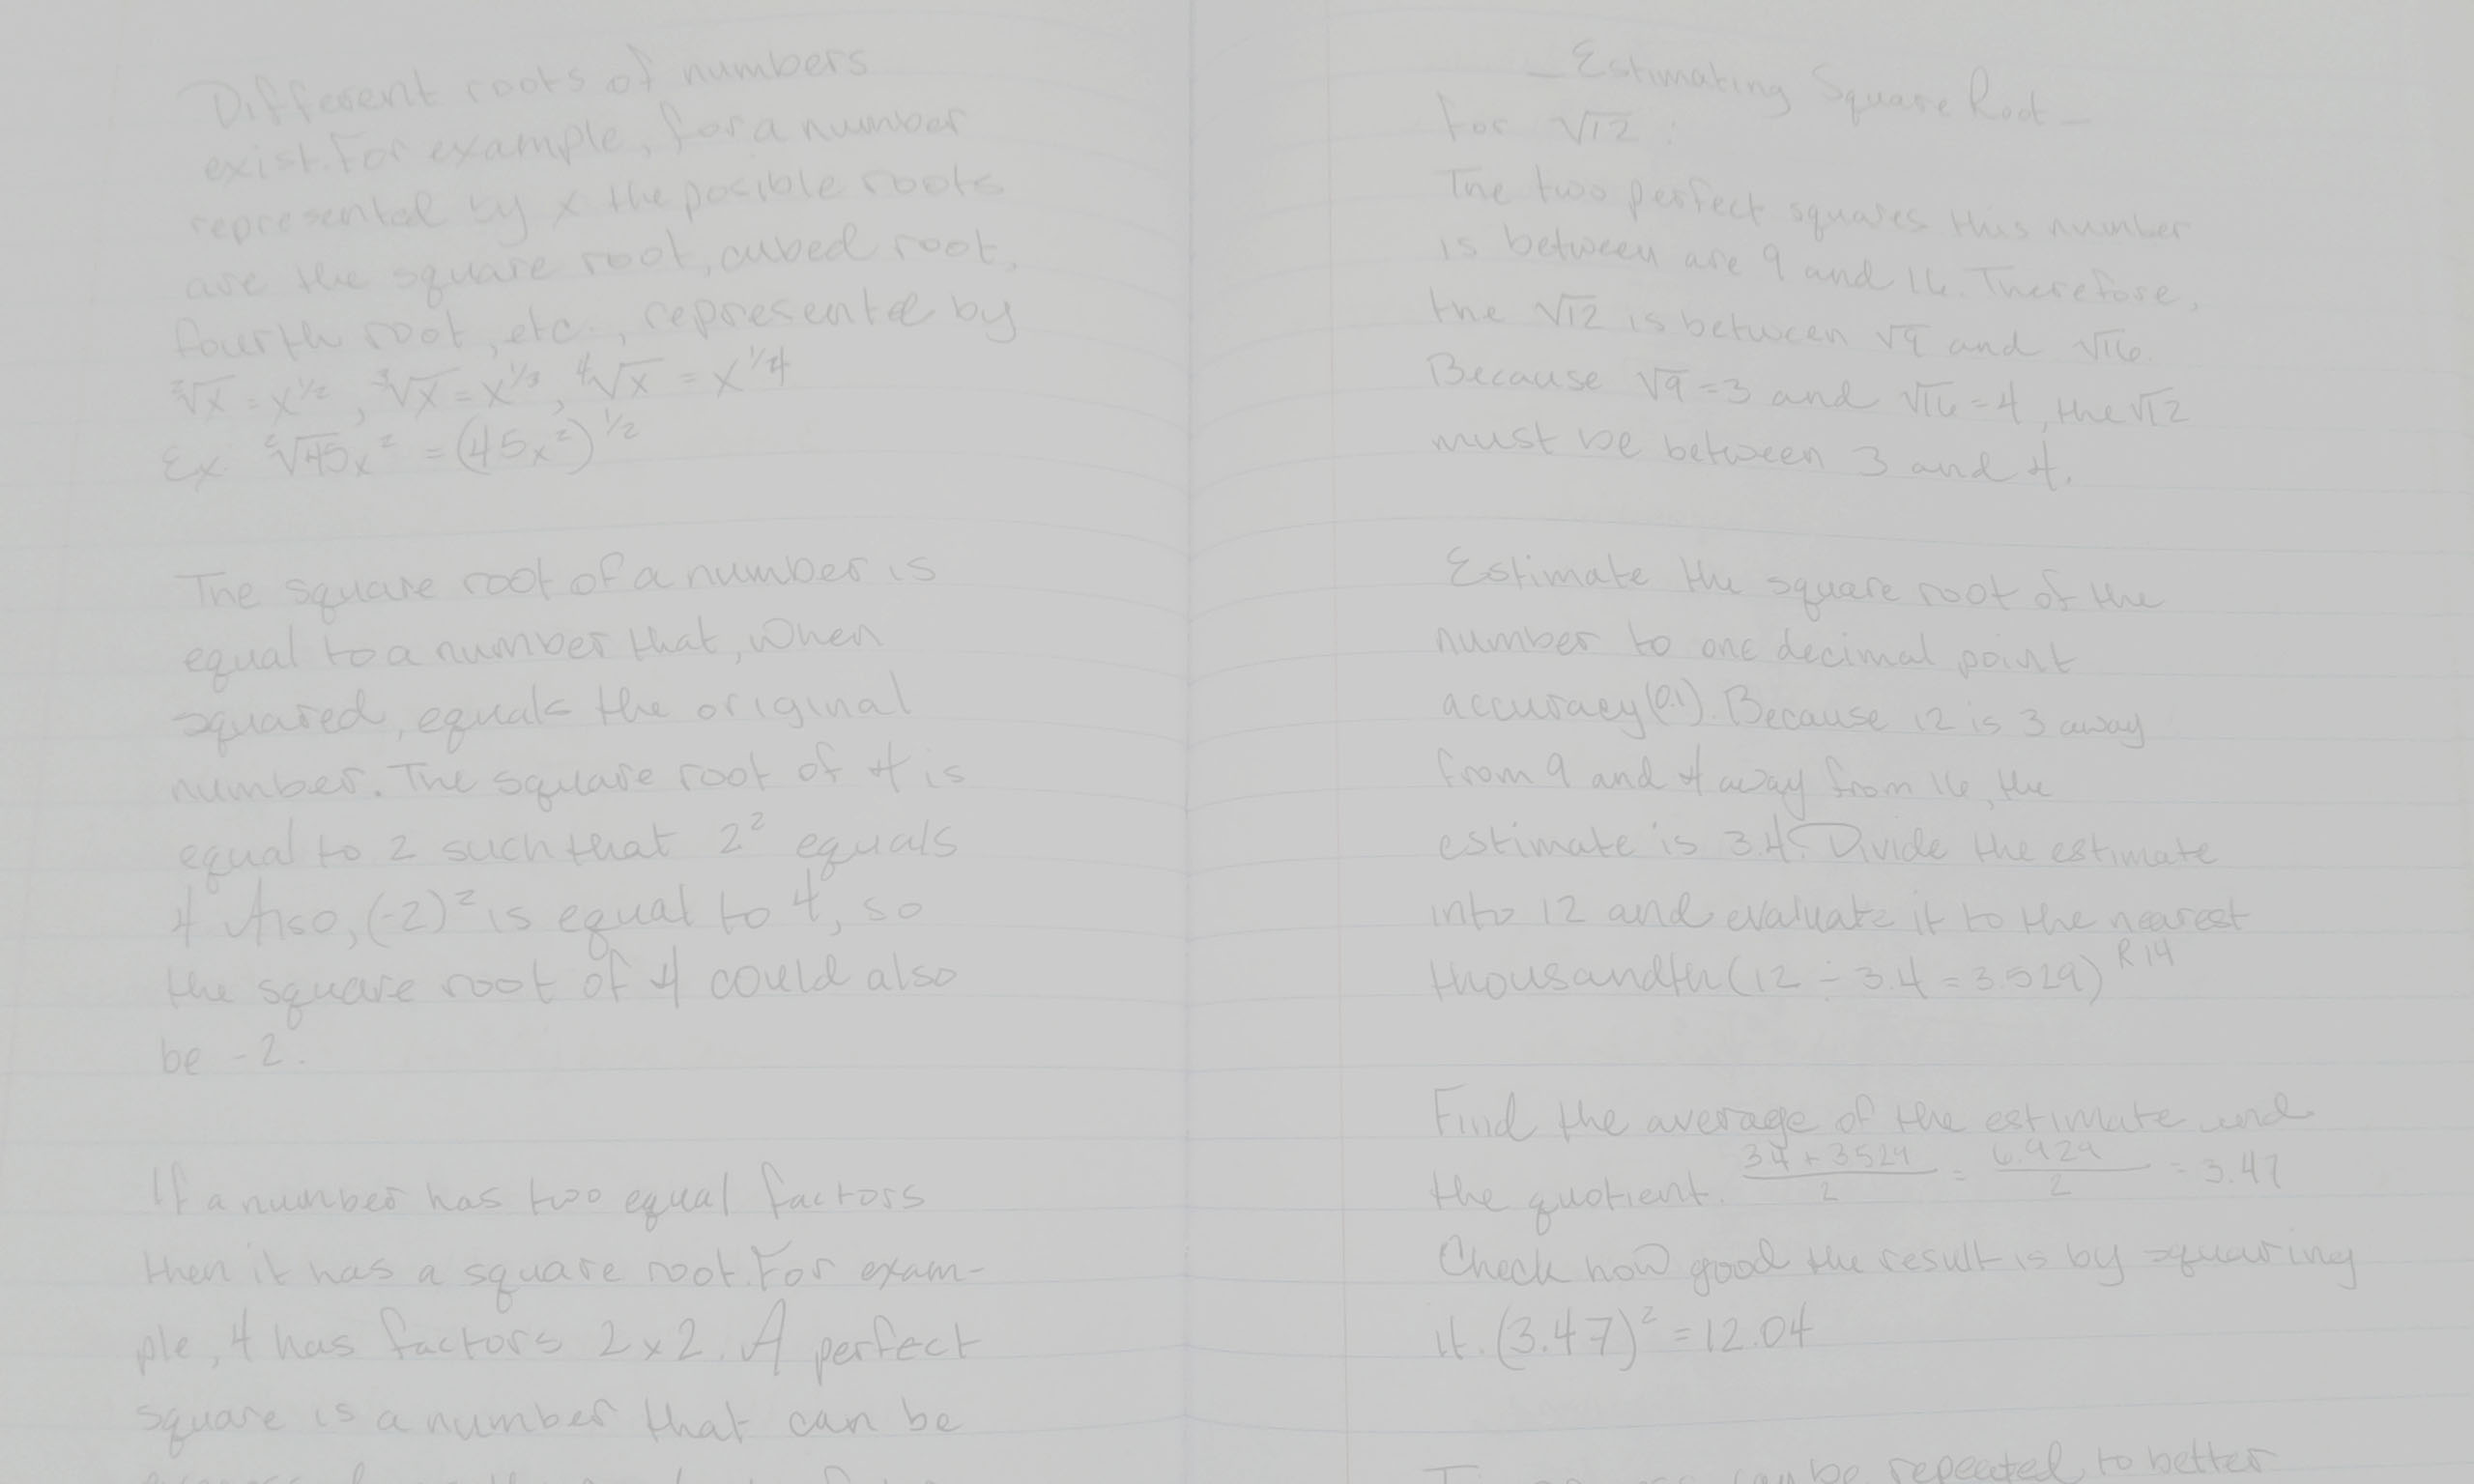 Different roots of numbers
exist. For example, for a number
represented by x the posible roots
are the square root, cubed root,
fourth root, etc., represented by
²√x = x^1/2, ³√x = x^1/3, ⁴√x = x^1/4
Ex. ²√45x² = (45x²)^1/2
The square root of a number is
equal to a number that, when
squared, equals the original
number. The square root of 4 is
equal to 2 such that 2² equals
4 Also, (-2)² is equal to 4, so
the square root of 4 could also
be -2.
If a number has two equal factors
then it has a square root. For exam-
ple, 4 has factors 2 x 2. A perfect
square is a number that can be
- Estimating Square Root -
For √12:
The two perfect squares this number
is between are 9 and 16. Therefore,
the √12 is between √9 and √16
Because √9 = 3 and √16 = 4, the √12
must be between 3 and 4.
Estimate the square root of the
number to one decimal point
accuracy (0.1). Because 12 is 3 away
from 9 and 4 away from 16, the
estimate is 3.4. Divide the estimate
into 12 and evaluate it to the nearest
thousandth (12 ÷ 3.4 = 3.529) R14
Find the average of the estimate and
the quotient. (3.4 + 3.529)/2 = 6.929/2 = 3.47
Check how good the result is by squaring
it. (3.47)² = 12.04
can be repeated to better